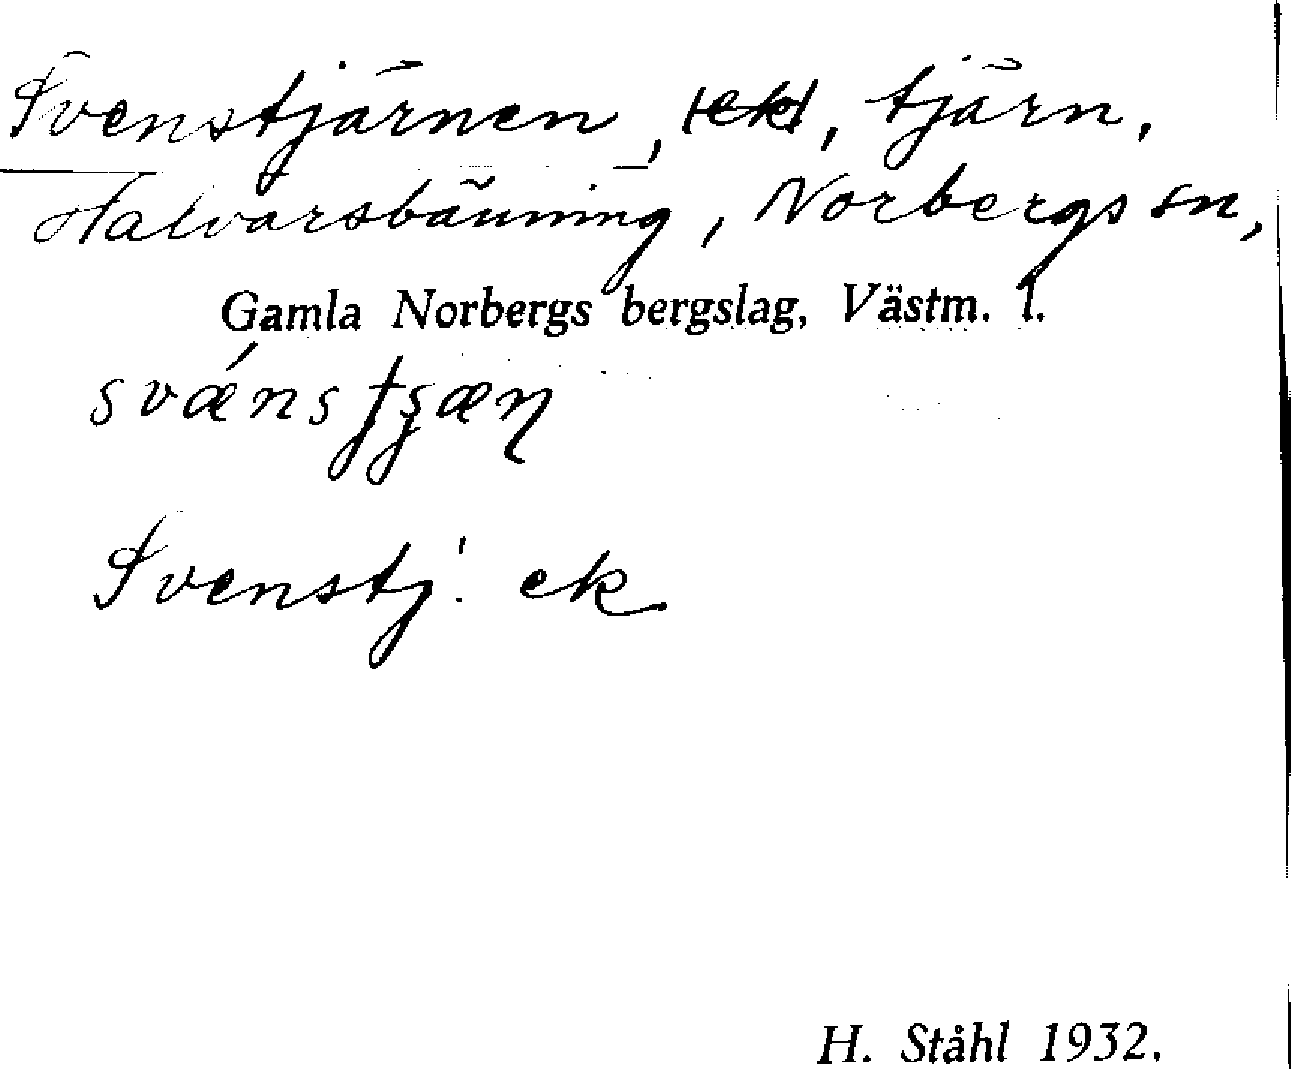 Svenstjärnen, (ek), tjärn,
Halvarsbäning, Norbergs sn,
Gamla Norbergs bergslag, Västm. l.
Svenstj. ek
H. Ståhl 1932.